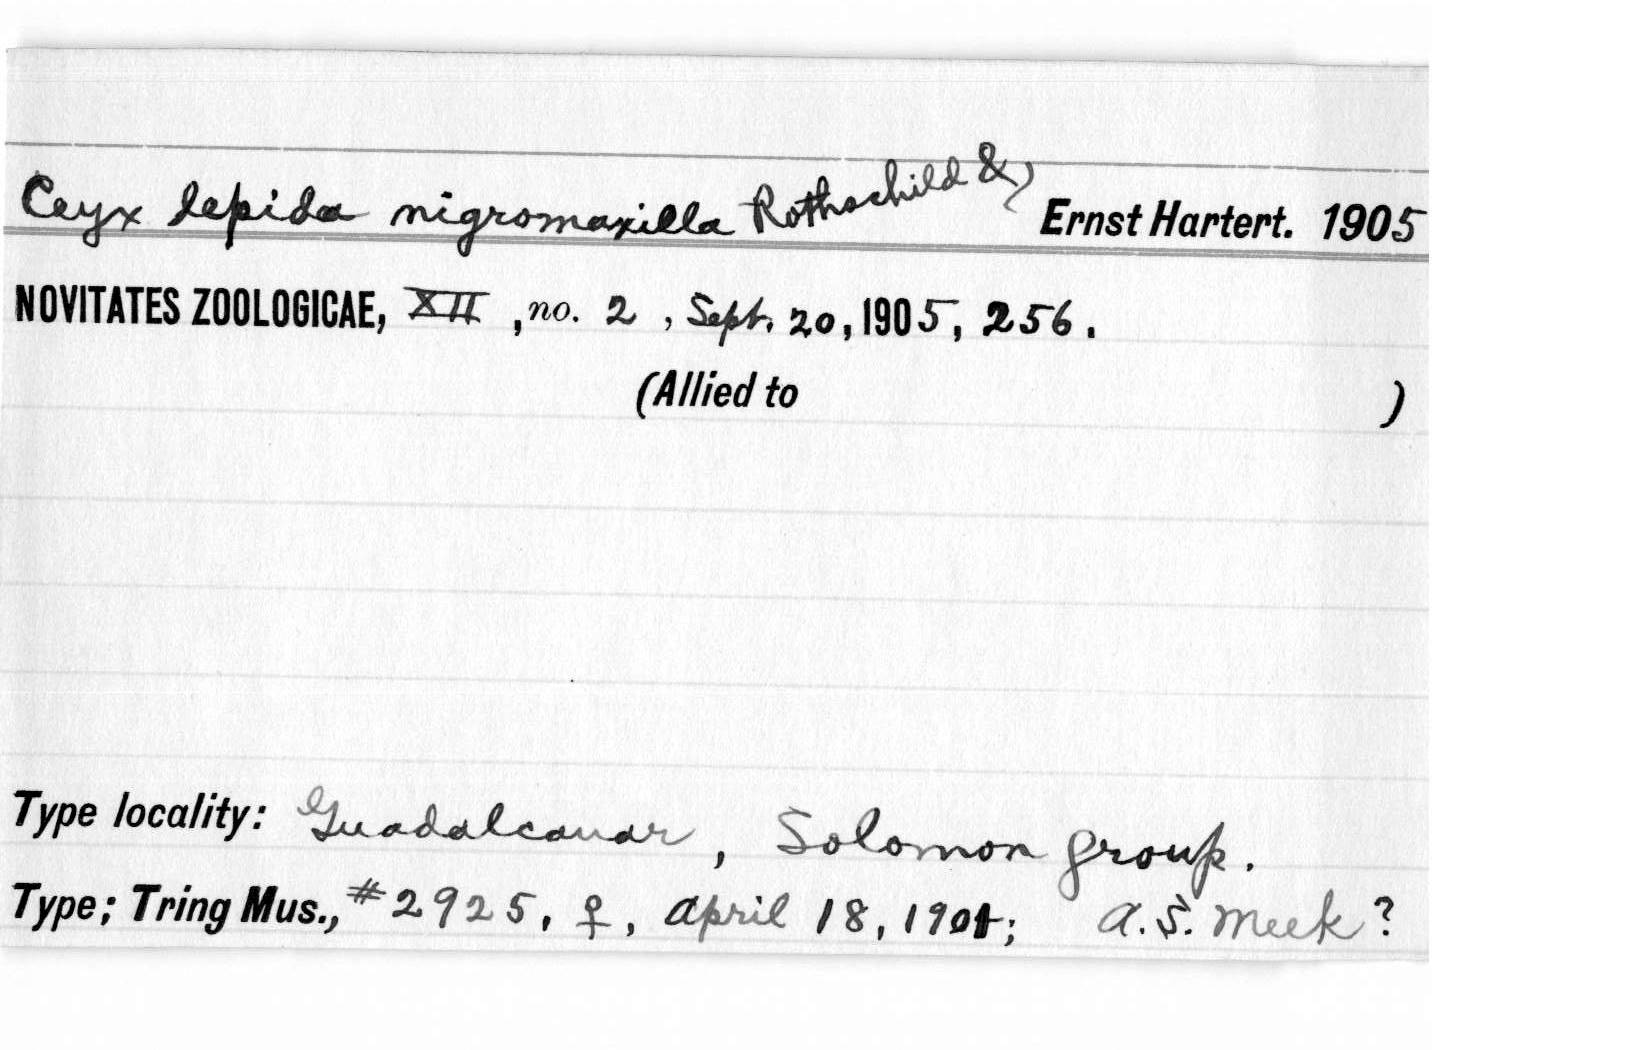 Ceyx lepida nigromaxilla Rothschild &) Ernst Hartert. 1905
NOVITATES ZOOLOGICAE, XII, no. 2, Sept. 20, 1905, 256.
(Allied to )
Type locality: Guadalcanar, Solomon group.
Type; Tring Mus., #2925, ♀, April 18, 1901; A.S. Meek?